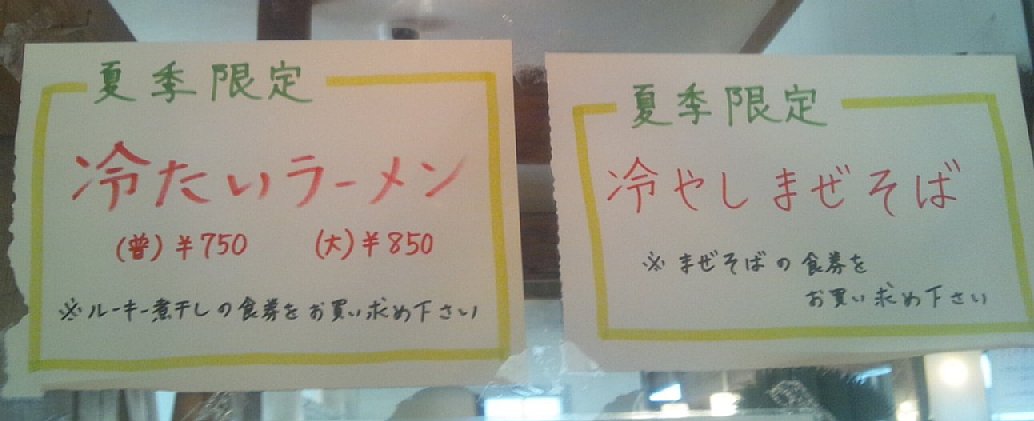 夏季限定
冷たいラーメン
(普)¥750 (大)¥850
※ルーキー煮干しの食券をお買い求め下さい
夏季限定
冷やしまぜそば
※まぜそばの食券を
お買い求め下さい